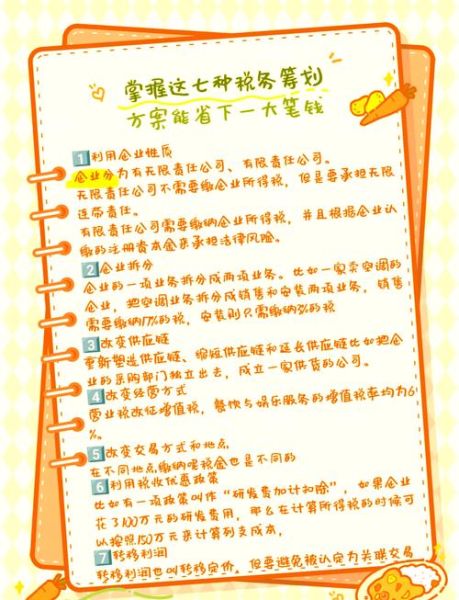 掌握这七种税务筹划
方案能省下一大笔钱
1 利用企业性质
企业分为有无限责任公司、有限责任公司。
无限责任公司不需要缴企业所得税，但是要承担无限
连带责任。
有限责任公司需要缴纳企业所得税，并且根据企业认
缴的注册资本金来承担法律风险。
2 企业拆分
企业的一项业务拆分成两项业务。比如一家卖空调的
企业，把空调业务拆分成销售和安装两项业务，销售
需要缴纳17%的税，安装则只需缴纳3%的税
3 改变供应链
重新塑造供应链、缩短供应链和延长供应链比如把企
业的采购部门独立出去，成立一家供货的公司。
4 改变经营方式
营业税改征增值税，餐饮与娱乐服务的增值税率均为6
%。
5 改变交易方式和地点
在不同地点缴纳嘿税金也是不同的
6 利用税收优惠政策
比如有一项政策叫作“研发费加计扣除”，如果企业
花了100万元的研发费用，那么在计算所得税的时候可
以按照150万元来计算列支成本，
7 转移利润
转移利润也叫转移定价。但要避免被认定为关联交易